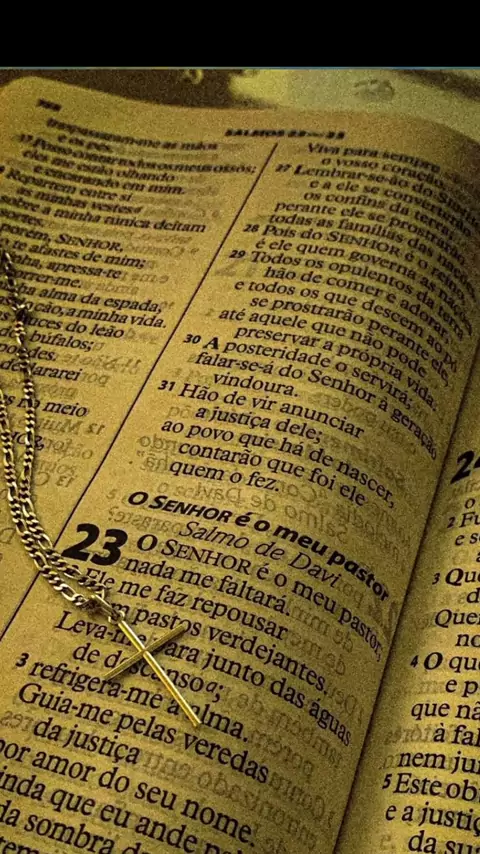 SALMOS 22—23
traspassaram-me as mãos
e os pés.
17 Posso contar todos os meus ossos;
eles me estão olhando
e encarando em mim.
Repartem entre si
as minhas vestes
sobre a minha túnica deitam
sortes.
porém, SENHOR,
te afastes de mim;
minha, apressa-te
minha alma da espada,
a minha vida.
fauces do leão
búfalos;
no meio
Viva para sempre
o vosso coração.
27 Lembrar-se-ão do
e a ele se converterão
os confins da terra;
perante ele se prostrarão
todas as famílias das
28 Pois do SENHOR é o reino,
é ele quem governa as nações.
29 Todos os opulentos da terra
hão de comer e adorar,
e todos os que descem ao pó
se prostrarão perante ele,
até aquele que não pode
preservar a própria vida.
30 A posteridade o servirá;
falar-se-á do Senhor à geração
vindoura.
31 Hão de vir anunciar
a justiça dele;
ao povo que há de nascer,
contarão que foi ele
quem o fez.
O SENHOR é o meu pastor
Salmo de Davi
23 O SENHOR é o meu pastor;
nada me faltará.
2 Ele me faz repousar
em pastos verdejantes.
Leva-me para junto das águas
de descanso;
3 refrigera-me a alma.
Guia-me pelas veredas
da justiça
por amor do seu nome.
ainda que eu ande
da sombra
24
2
e
3
Quem
4 O
e
que
à
nem
5 Este
e a
da